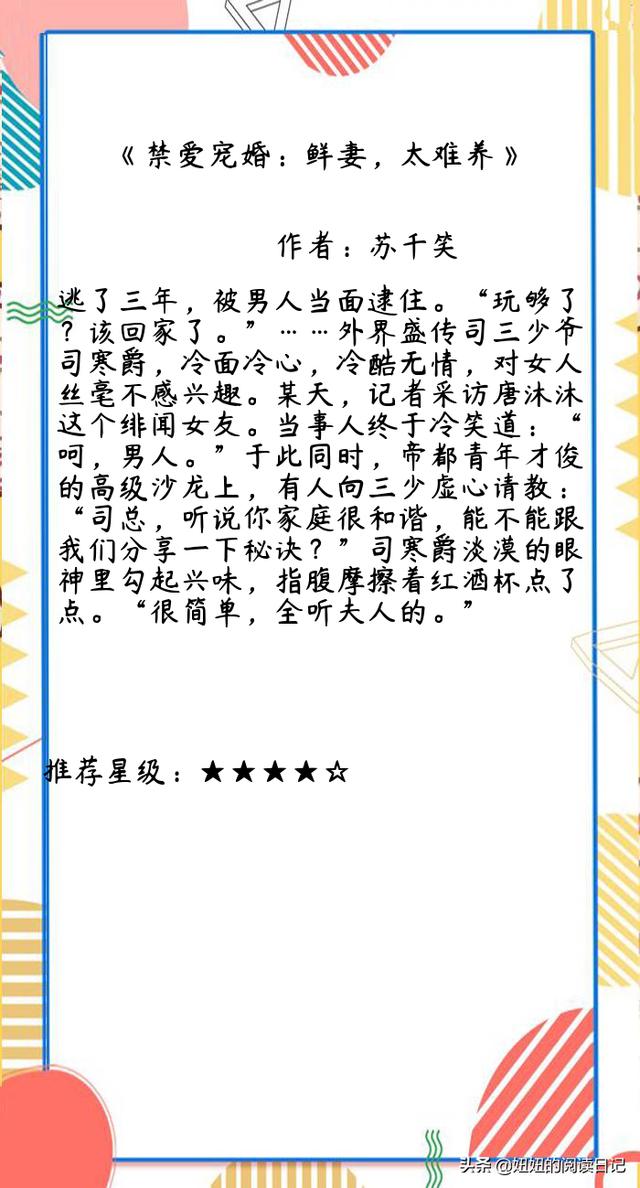 《禁爱宠婚：鲜妻，太难养》
作者：苏千笑
逃了三年，被男人当面逮住。“玩够了
？该回家了。”……外界盛传司三少爷
司寒爵，冷面冷心，冷酷无情，对女人
丝毫不感兴趣。某天，记者采访唐沐沐
这个绯闻女友。当事人终于冷笑道：“
呵，男人。”于此同时，帝都青年才俊
的高级沙龙上，有人向三少虚心请教：
“司总，听说你家庭很和谐，能不能跟
我们分享一下秘诀？”司寒爵淡漠的眼
神里勾起兴味，指腹摩擦着红酒杯点了
点。“很简单，全听夫人的。”
推荐星级：★★★★☆
头条 @妞妞的阅读日记